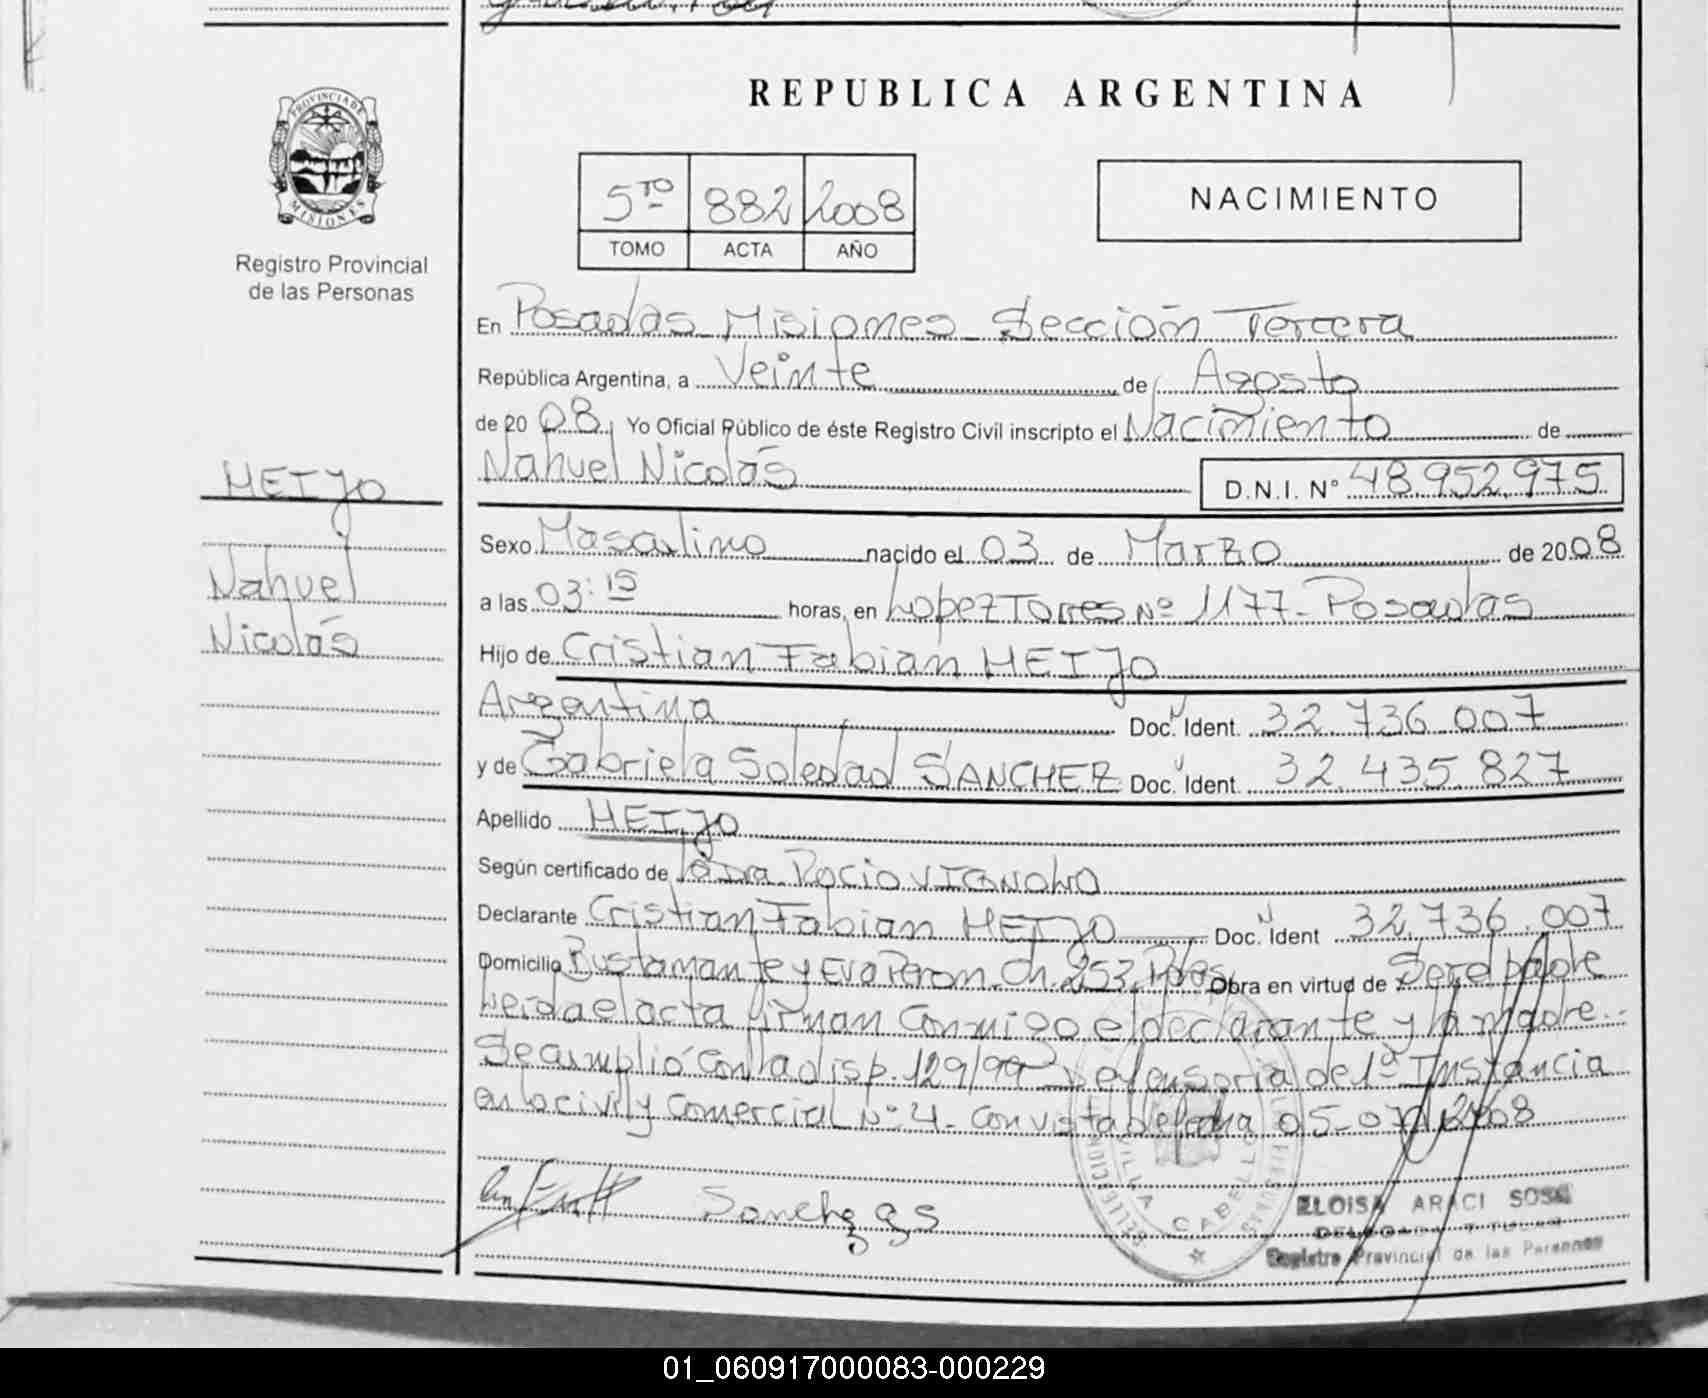 REPUBLICA ARGENTINA
PROVINCIA DE
MISIONES
Registro Provincial
de las Personas
5TO 882 2008
TOMO ACTA AÑO
NACIMIENTO
En Posadas Misiones Sección Tercera
República Argentina, a Veinte de Agosto
de 20 08. Yo Oficial Público de éste Registro Civil inscripto el Nacimiento de
Nahuel Nicolás D.N.I. N° 48.952.975
MEIJO
Nahuel
Nicolás
Sexo Masculino nacido el 03 de Marzo de 2008
a las 03:15 horas, en Lopez Torres Nº 1177- Posadas
Hijo de Cristian Fabian MEIJO
Argentina Doc. Ident. 32.736.007
y de Gabriela Soledad SANCHEZ Doc. Ident. 32.435.827
Apellido MEIJO
Según certificado de la Dra. Rocio
Declarante Cristian Fabian MEIJO Doc. Ident 32.736.007
Domicilio Bustamante y Eva Peron Ch. 253. Pdas Obra en virtud de Ser el padre
Leida el acta firman Conmigo el declarante y la madre.-
Se cumplió con la disp. 129/99 Defensoria de 1ª Instancia
en lo civil y Comercial Nº 4- con vista de fecha 05-07-2008
Sanchez G S
VILLA CABELLO
ELOISA ARACI SOSA
DELEGADA TITULAR
Registro Provincial de las Personas
01_060917000083-000229